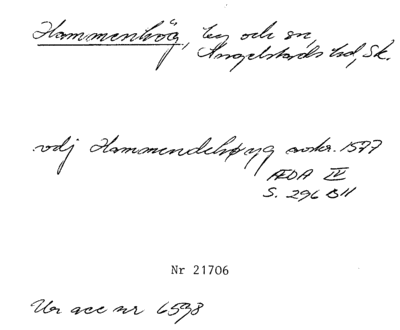 Hammenhög, by och sn,
Ingelstads hd, Sk.
vdj Hammendehøyg avskr. 1577
ÆDA IV
S. 296 BII
Nr 21706
Ur acc nr 6598